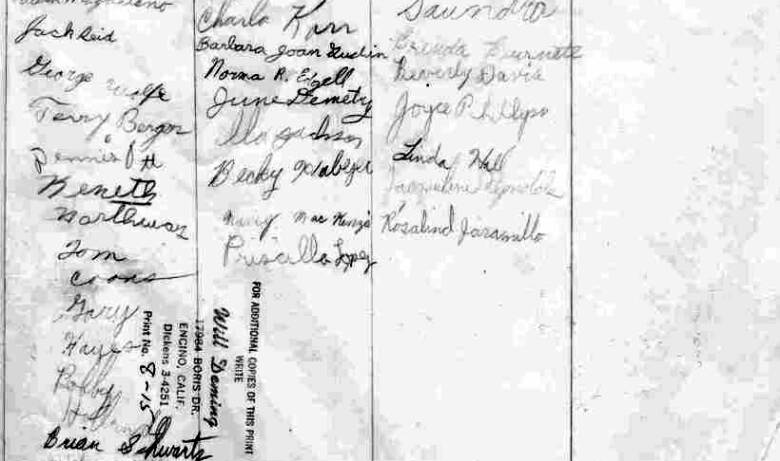 Jack Reid
George Wolfe
Terry Berger
Dennis
Keneth
Northway
Tom
Coons
Gary
Hayes
Bobby
Brian Schwartz
Charla Karr
Barbara Joan
Norma R. Edgell
June Demetry
Ila Jackson
Becky
Nancy Mac Kenzie
Priscilla Lopez
Saundra
Brenda Burnett
Beverly Davis
Joyce Phillips
Linda Hall
Jacqueline Reynolds
Rosalind Jaramillo
FOR ADDITIONAL COPIES OF THIS PRINT
WRITE
Will Deming
17984 BORIS DR.
ENCINO, CALIF.
Dickens 3-4251
Print No. 8-15